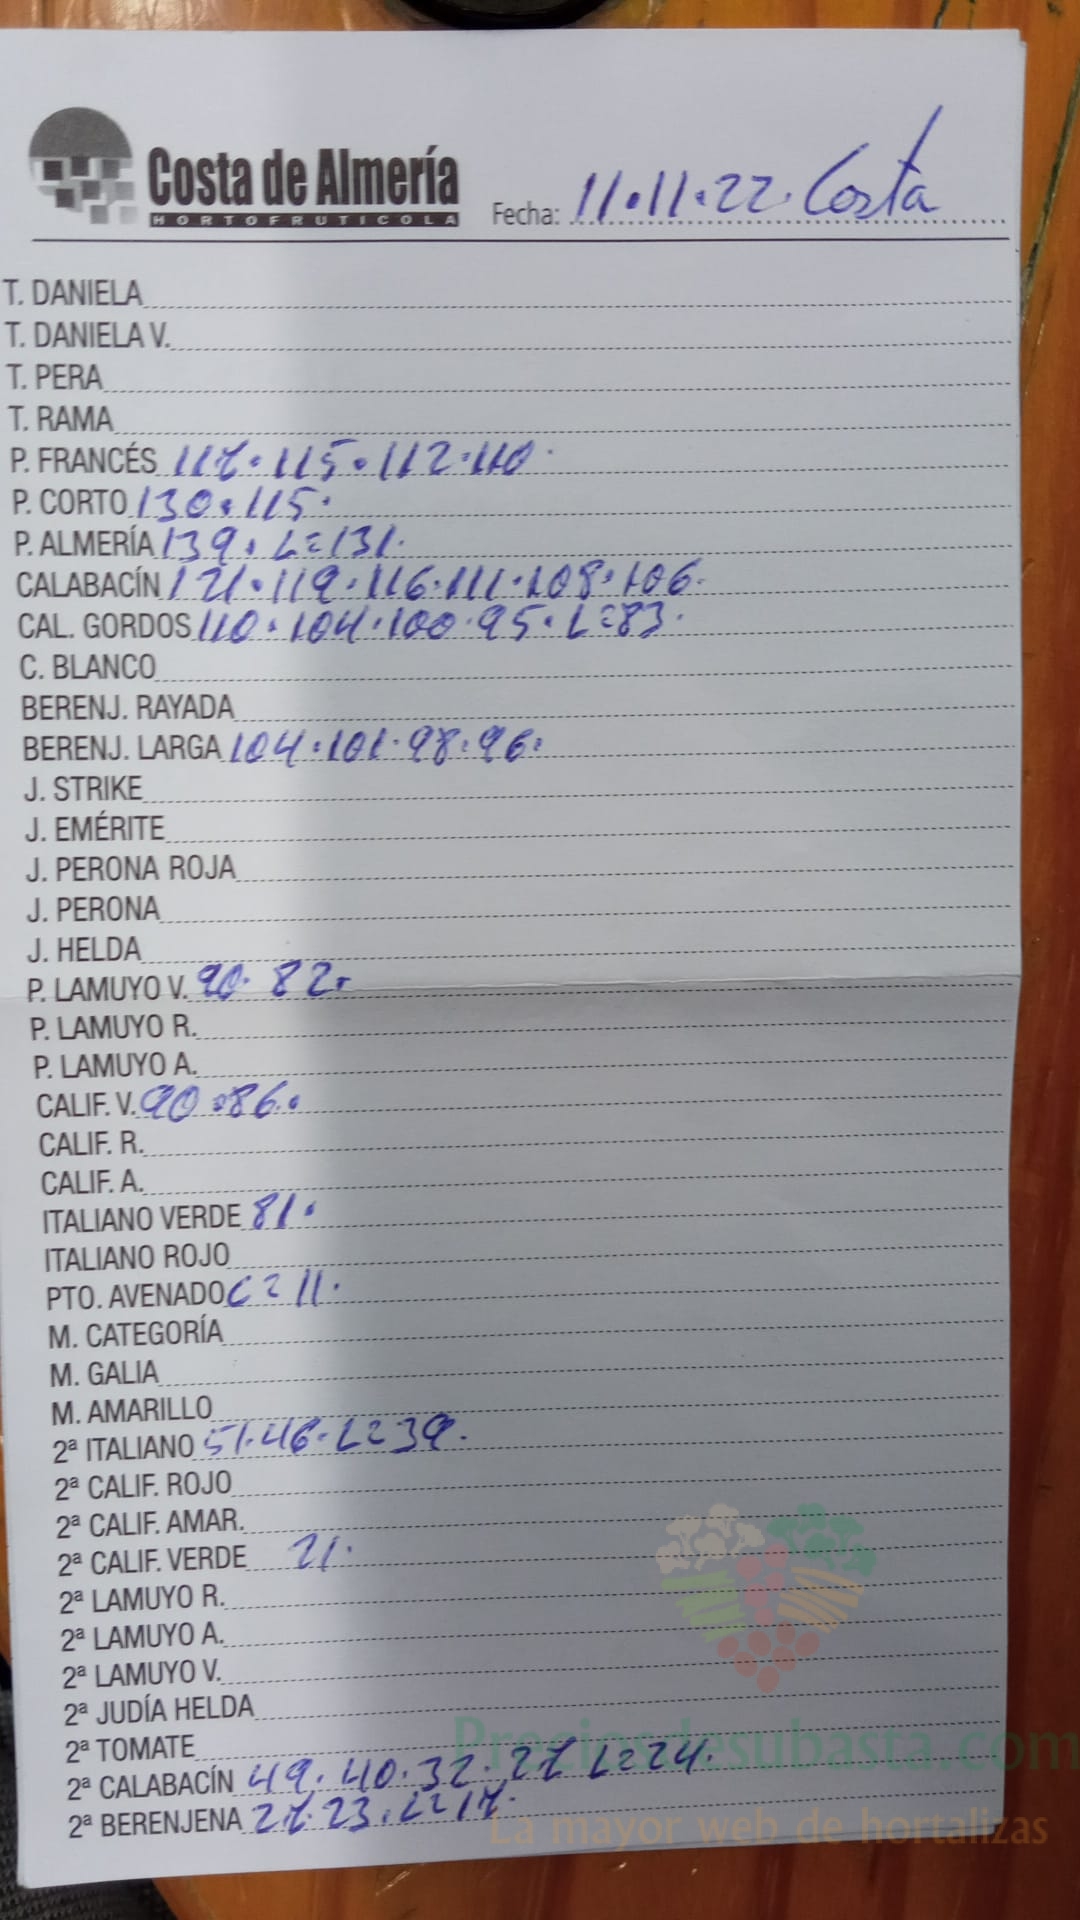 Costa de Almería
HORTOFRUTICOLA
Fecha: 11.11.22. Costa
T. DANIELA
T. DANIELA V.
T. PERA
T. RAMA
P. FRANCÉS 117.115.112.110.
P. CORTO 130.115.
P. ALMERÍA 139. L=131.
CALABACÍN 121.119.116.111.108.106.
CAL. GORDOS 110.104.100.95.L=83.
C. BLANCO
BERENJ. RAYADA
BERENJ. LARGA 104.101.98.96.
J. STRIKE
J. EMÉRITE
J. PERONA ROJA
J. PERONA
J. HELDA
P. LAMUYO V. 90. 82.
P. LAMUYO R.
P. LAMUYO A.
CALIF. V. 90.86.
CALIF. R.
CALIF. A.
ITALIANO VERDE 81.
ITALIANO ROJO
PTO. AVENADO C=11.
M. CATEGORÍA
M. GALIA
M. AMARILLO
2ª ITALIANO 51.46.L=39.
2ª CALIF. ROJO
2ª CALIF. AMAR.
2ª CALIF. VERDE 21.
2ª LAMUYO R.
2ª LAMUYO A.
2ª LAMUYO V.
2ª JUDÍA HELDA
2ª TOMATE
2ª CALABACÍN 49.40.32.27 L=24.
2ª BERENJENA 27.23.L=17.
Preciosdesubasta.com
La mayor web de hortalizas